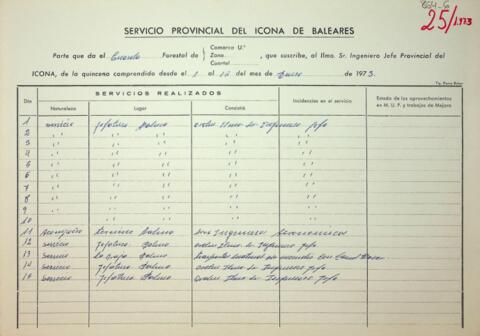 C64-6
25/1.973
SERVICIO PROVINCIAL DEL ICONA DE BALEARES
Parte que da el Guarda Forestal de { Comarca U.ª Zona Cuartel , que suscribe, al Ilmo. Sr. Ingeniero Jefe Provincial del
ICONA, de la quincena comprendida desde el 1 al 15 del mes de Enero de 1973.
SERVICIOS REALIZADOS
Día Naturaleza Lugar Consistió Incidencias en el servicio Estado de los aprovechamientos en M. U. P. y trabajos de Mejora
1 servicio Jefatura Palma orden Ilmo. Sr. Ingeniero Jefe
2 " " " " "
3 " " " " "
4 " " " " "
5 " " " " "
6 " " " " "
7 " " " " "
8 " " " " "
9 " " " " "
10 " " " " "
11 termino Palma Ingeniero
12 servicio Jefatura Palma orden Ilmo. Sr. Ingeniero Jefe
13 servicio Palma material de
14 servicio Jefatura Palma orden Ilmo. Sr. Ingeniero Jefe
15 servicio Jefatura Palma orden Ilmo. Sr. Ingeniero Jefe